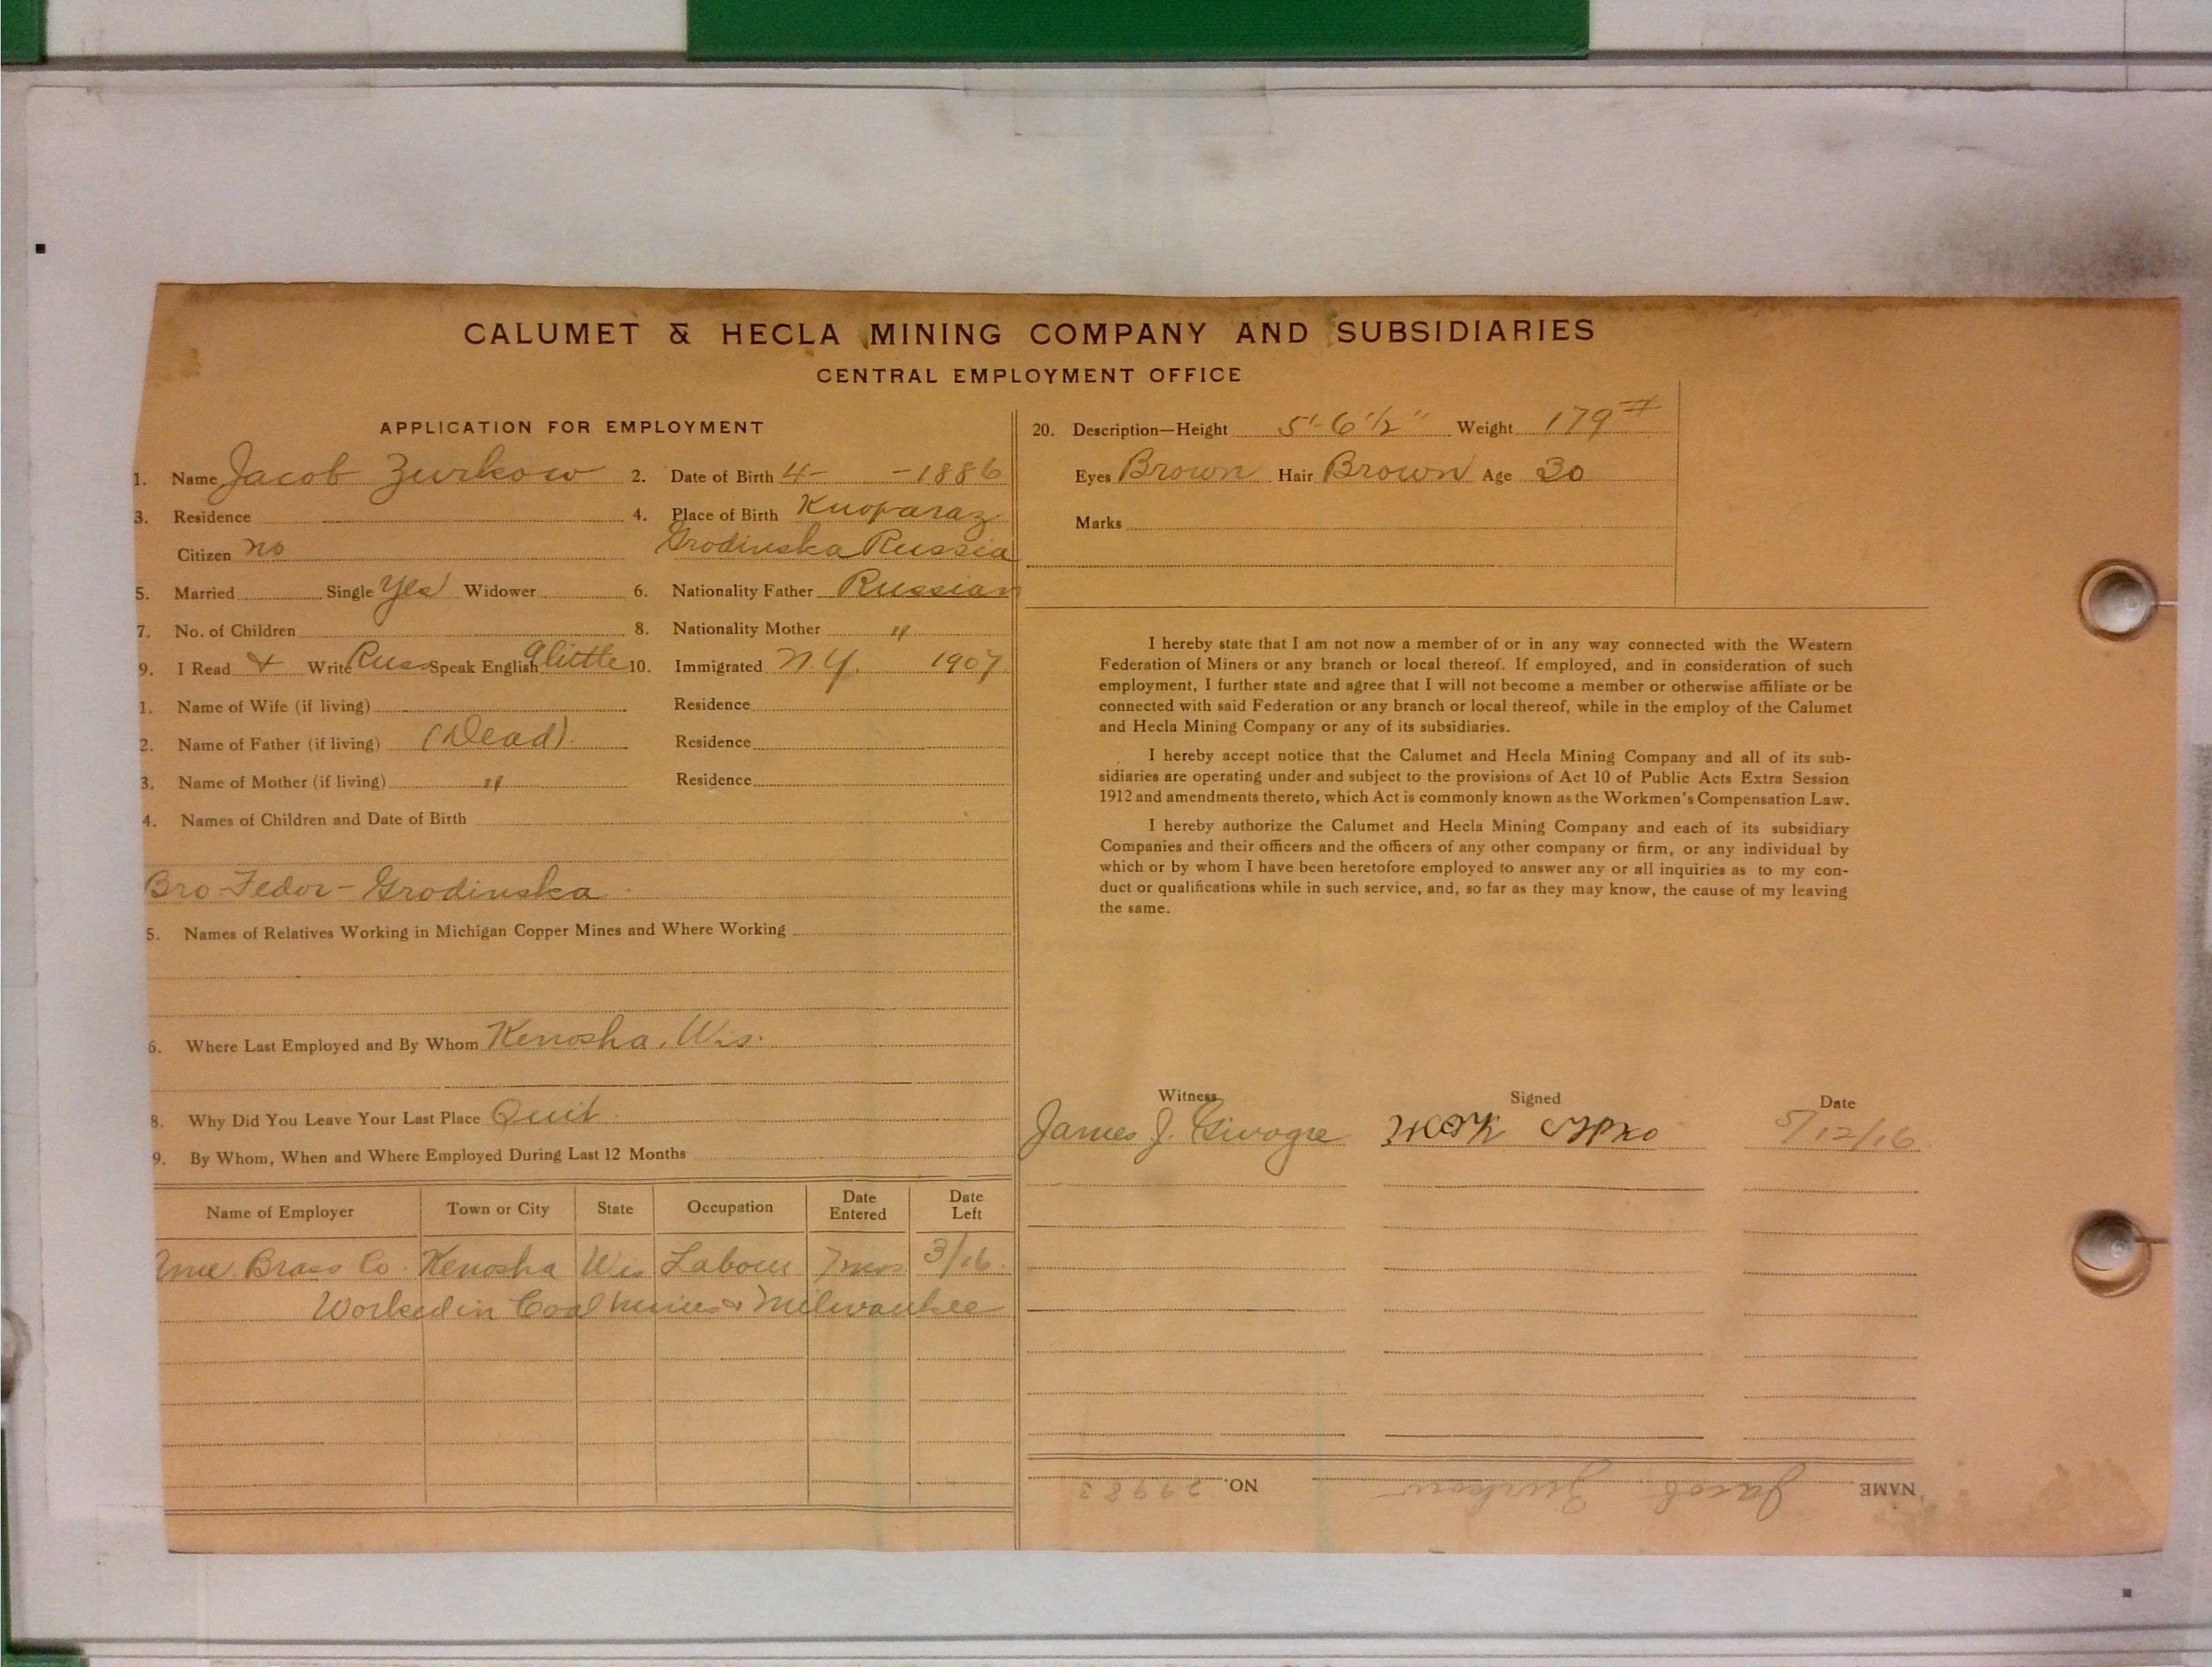 CALUMET & HECLA MINING COMPANY AND SUBSIDIARIES
CENTRAL EMPLOYMENT OFFICE
APPLICATION FOR EMPLOYMENT
1. Name Jacob Zurkow 2. Date of Birth 4- -1886
3. Residence 4. Place of Birth Knoparaz
Citizen no Grodinska Russia
5. Married Single Yes Widower 6. Nationality Father Russian
7. No. of Children 8. Nationality Mother "
9. I Read & Write Russ Speak English a little 10. Immigrated N.Y. 1907.
1. Name of Wife (if living) Residence
2. Name of Father (if living) (Dead). Residence
3. Name of Mother (if living) " Residence
4. Names of Children and Date of Birth
Bro-Fedor-Grodinska
5. Names of Relatives Working in Michigan Copper Mines and Where Working
6. Where Last Employed and By Whom Kenosha, Wis.
8. Why Did You Leave Your Last Place Quit.
9. By Whom, When and Where Employed During Last 12 Months
Name of Employer Town or City State Occupation Date Entered Date Left
Ame. Brass Co. Kenosha Wis Labour 7 mos. 3/16.
Worked in Coal mines & Milwaukee
20. Description—Height 5'-6 1/2" Weight 179#
Eyes Brown Hair Brown Age 30
Marks
I hereby state that I am not now a member of or in any way connected with the Western
Federation of Miners or any branch or local thereof. If employed, and in consideration of such
employment, I further state and agree that I will not become a member or otherwise affiliate or be
connected with said Federation or any branch or local thereof, while in the employ of the Calumet
and Hecla Mining Company or any of its subsidiaries.
I hereby accept notice that the Calumet and Hecla Mining Company and all of its sub-
sidiaries are operating under and subject to the provisions of Act 10 of Public Acts Extra Session
1912 and amendments thereto, which Act is commonly known as the Workmen's Compensation Law.
I hereby authorize the Calumet and Hecla Mining Company and each of its subsidiary
Companies and their officers and the officers of any other company or firm, or any individual by
which or by whom I have been heretofore employed to answer any or all inquiries as to my con-
duct or qualifications while in such service, and, so far as they may know, the cause of my leaving
the same.
Witness Signed Date
James J. 5/12/16.
NAME Jacob Zurkow NO. 29983